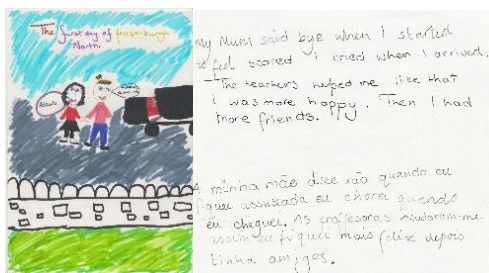 The first day of fraserburgh
North
My Mum said bye when I started
I feel scared I cried when I arrived.
The teachers helped me like that
I was more happy. Then I had
more friends.
A minha mãe disse xão quando eu
fiquei assustada eu chora quando
eu cheguei. As professoras ajudaram-me
assim eu fiquei mais feliz depois
tinha amigos.